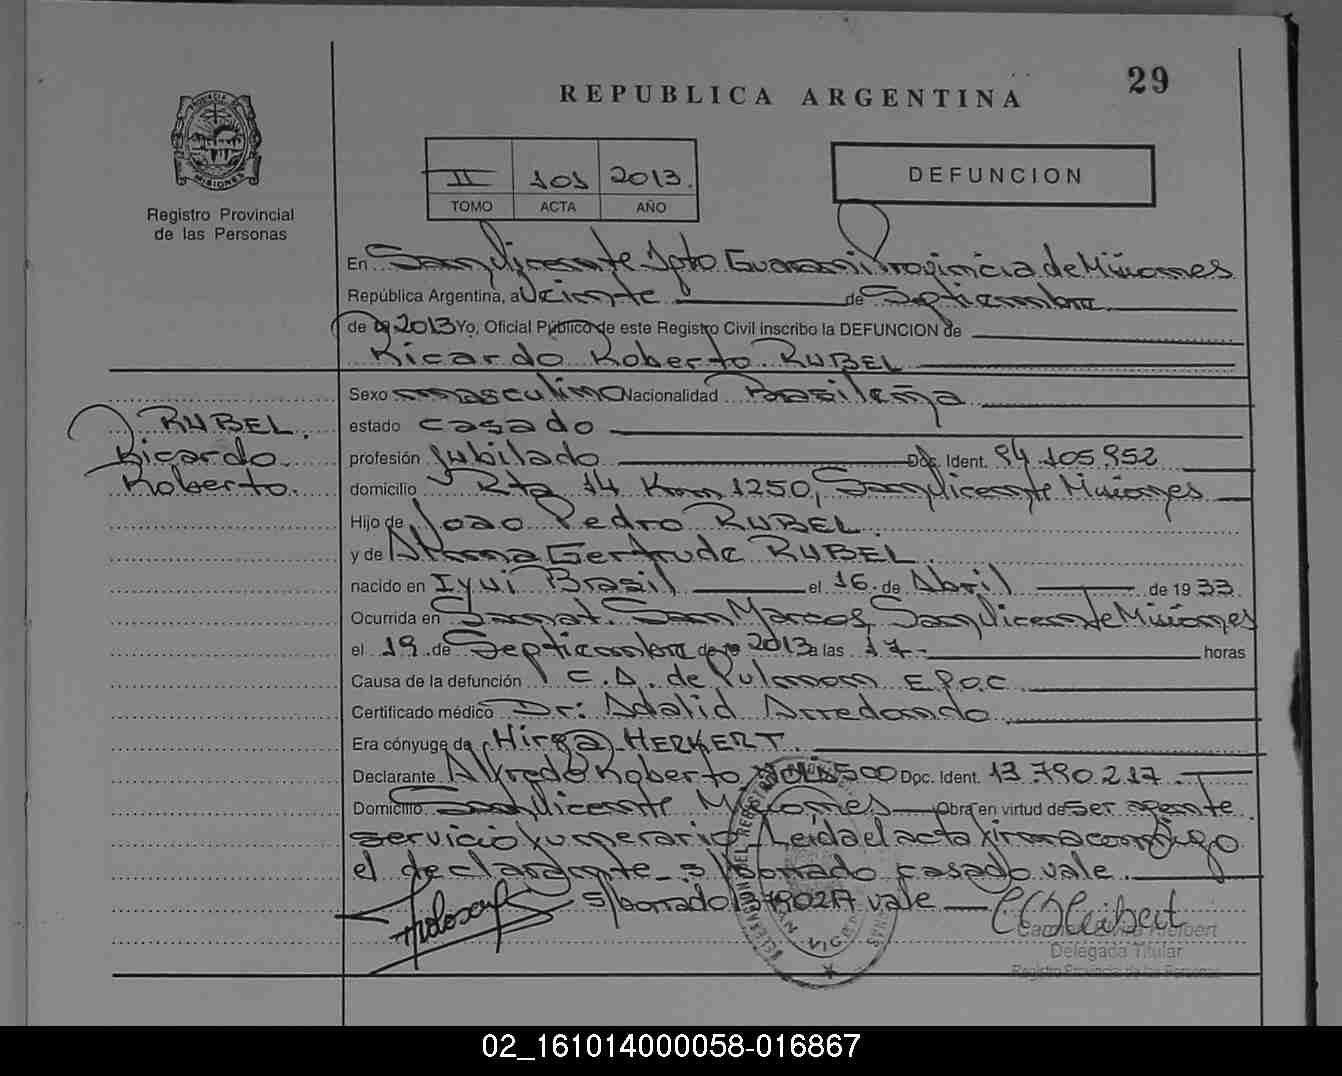 29
REPUBLICA ARGENTINA
DEFUNCION
II 101 2013.
TOMO ACTA AÑO
Registro Provincial
de las Personas
PROVINCIA DE
MISIONES
En San Vicente Dpto Guarani Provincia de Misiones
República Argentina, a Veinte de Septiembre
de 2013 Yo, Oficial Público de este Registro Civil inscribo la DEFUNCION de
Ricardo Roberto RUBEL
Sexo masculino Nacionalidad Brasileña
RUBEL.
Ricardo
Roberto.
estado casado
profesión Jubilado Doc. Ident. 94.105.952
domicilio Rta 14 Km 1250, San Vicente Misiones
Hijo de Joao Pedro RUBEL.
y de Gertrude RUBEL.
nacido en Iyui Brasil el 16 de Abril de 1933.
Ocurrida en Sanat. San Marcos, San Vicente Misiones
el 19 de Septiembre de 2013 a las 17- horas
Causa de la defunción C.A. de Pulmon EPOC
Certificado médico Dr: Adalid Arredondo
Era cónyuge de Hirga HERKERT
Declarante Alfredo Roberto Doc. Ident. 13.790.217
Domicilio San Vicente Misiones Obra en virtud de ser agente
servicio funerario. Leida el acta firma conmigo
el declarante_ s/borrado casado vale.
s/borrado 13790217 vale
Delegada Titular
Registro Provincial de las Personas
02_161014000058-016867